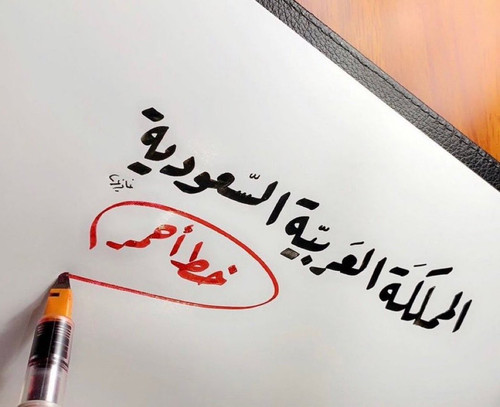 المملكَة العَربيّة السّعودية
خط أحمر